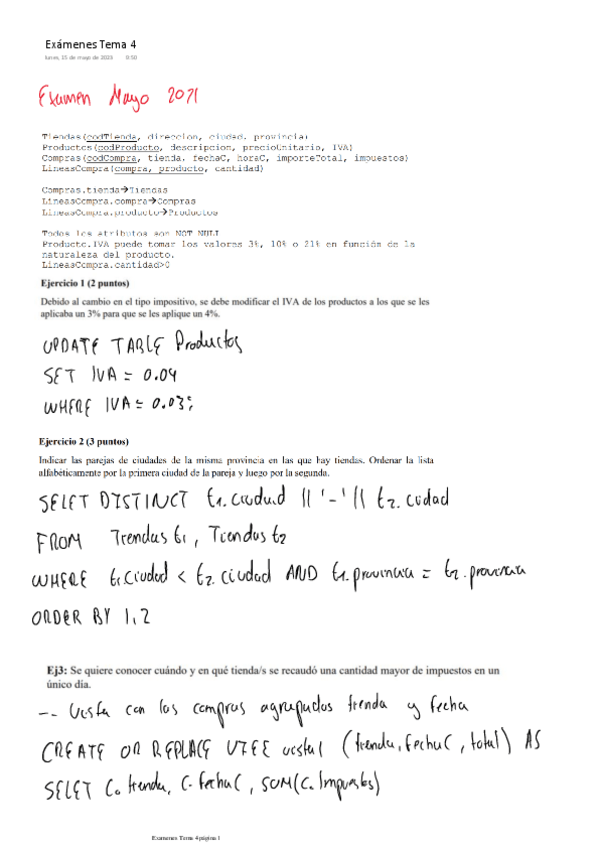 Exámenes Tema 4
lunes, 15 de mayo de 2023 8:50
Examen Mayo 2021
Tiendas(codTienda, direccion, ciudad, provincia)
Productos(codProducto, descripcion, precioUnitario, IVA)
Compras(codCompra, tienda, fechaC, horaC, importeTotal, impuestos)
LineasCompra(compra, producto, cantidad)
Compras.tienda→Tiendas
LineasCompra.compra→Compras
LineasCompra.producto→Productos
Todos los atributos son NOT NULL
Producto.IVA puede tomar los valores 3%, 10% o 21% en función de la
naturaleza del producto.
LineasCompra.cantidad>0
Ejercicio 1 (2 puntos)
Debido al cambio en el tipo impositivo, se debe modificar el IVA de los productos a los que se les
aplicaba un 3% para que se les aplique un 4%.
UPDATE TABLE Productos
SET IVA = 0.04
WHERE IVA = 0.03;
Ejercicio 2 (3 puntos)
Indicar las parejas de ciudades de la misma provincia en las que hay tiendas. Ordenar la lista
alfabéticamente por la primera ciudad de la pareja y luego por la segunda.
SELET DISTINCT t1.ciudad || '-' || t2.ciudad
FROM Tiendas t1, Tiendas t2
WHERE t1.ciudad < t2.ciudad AND t1.provincia = t2.provincia
ORDER BY 1,2
Ej3: Se quiere conocer cuándo y en qué tienda/s se recaudó una cantidad mayor de impuestos en un
único día.
-- Vista con las compras agrupadas tienda y fecha
CREATE OR REPLACE VIEW vista1 (tienda, fechaC, total) AS
SELET C.tienda, C.fechaC, SUM(C.Impuestos)
Examenes Tema 4 página 1